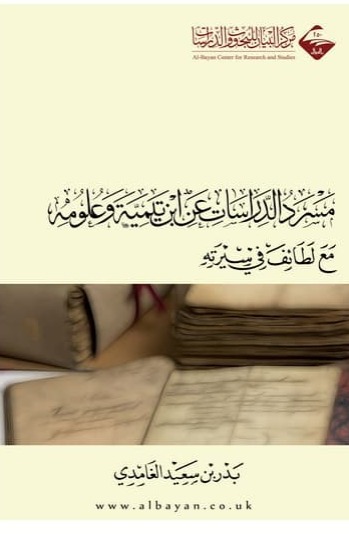 مركز البيان للبحوث والدراسات
Al-Bayan Center for Research and Studies
مَسْرَدُ الدِّرَاسَاتِ عَنِ ابْنِ تَيْمِيَّةَ وَعُلُومِهِ
مَعَ لَطَائِفَ فِي سِيْرَتِهِ
بَدْر بْن سَعِيْد الغَامِدِي
www.albayan.co.uk